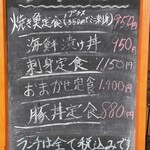 焼き魚定食 950円
海鮮漬け丼 950円
刺身定食 1,150円
おまかせ定食 1,400円
豚丼定食 880円
ランチは全て税込みです